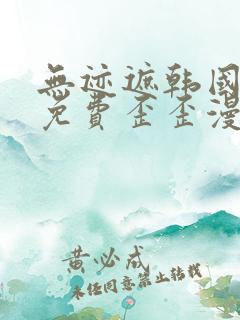 無迹遮韩國
免費歪歪漫
黄必成
未经同意禁止转载